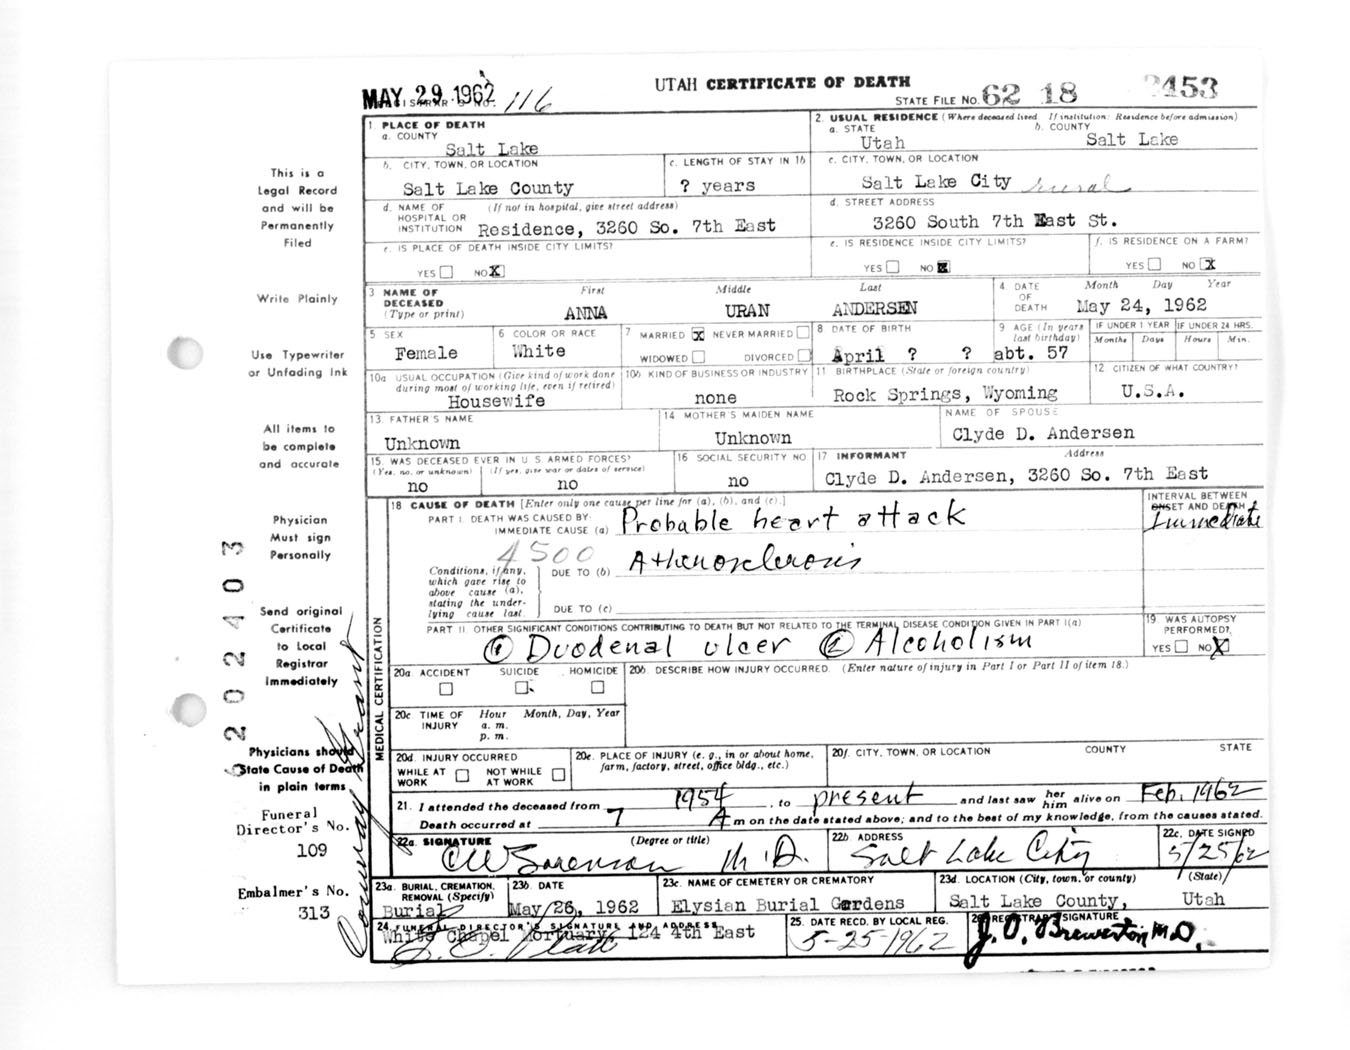 MAY 29 1962
REGISTRAR'S NO. 116
UTAH CERTIFICATE OF DEATH
STATE FILE NO. 62 18 2453
1. PLACE OF DEATH
a. COUNTY
Salt Lake
2. USUAL RESIDENCE (Where deceased lived. If institution: Residence before admission)
a. STATE
Utah
b. COUNTY
Salt Lake
b. CITY, TOWN, OR LOCATION
Salt Lake County
c. LENGTH OF STAY IN 1b
? years
c. CITY, TOWN, OR LOCATION
Salt Lake City rural
d. NAME OF HOSPITAL OR INSTITUTION (If not in hospital, give street address)
Residence, 3260 So. 7th East
d. STREET ADDRESS
3260 South 7th East St.
e. IS PLACE OF DEATH INSIDE CITY LIMITS?
YES NO X
e. IS RESIDENCE INSIDE CITY LIMITS?
YES NO X
f. IS RESIDENCE ON A FARM?
YES NO X
3 NAME OF DECEASED (Type or print)
First Middle Last
ANNA URAN ANDERSEN
4 DATE OF DEATH
Month Day Year
May 24, 1962
5 SEX
Female
6 COLOR OR RACE
White
7 MARRIED X NEVER MARRIED
WIDOWED DIVORCED
8 DATE OF BIRTH
April ? ?
9 AGE (In years last birthday)
abt. 57
IF UNDER 1 YEAR
Months Days
IF UNDER 24 HRS.
Hours Min.
10a USUAL OCCUPATION (Give kind of work done during most of working life, even if retired)
Housewife
10b KIND OF BUSINESS OR INDUSTRY
none
11 BIRTHPLACE (State or foreign country)
Rock Springs, Wyoming
12 CITIZEN OF WHAT COUNTRY?
U.S.A.
13. FATHER'S NAME
Unknown
14 MOTHER'S MAIDEN NAME
Unknown
NAME OF SPOUSE
Clyde D. Andersen
15. WAS DECEASED EVER IN U.S. ARMED FORCES?
(Yes, no, or unknown) (If yes, give war or dates of service)
no no
16 SOCIAL SECURITY NO.
no
17 INFORMANT Address
Clyde D. Andersen, 3260 So. 7th East
18 CAUSE OF DEATH [Enter only one cause per line for (a), (b), and (c).]
PART I. DEATH WAS CAUSED BY:
IMMEDIATE CAUSE (a) Probable heart attack
INTERVAL BETWEEN ONSET AND DEATH
Immediate
4500
Conditions, if any, which gave rise to above cause (a), stating the underlying cause last.
DUE TO (b) Atherosclerosis
DUE TO (c)
PART II. OTHER SIGNIFICANT CONDITIONS CONTRIBUTING TO DEATH BUT NOT RELATED TO THE TERMINAL DISEASE CONDITION GIVEN IN PART I(a)
① Duodenal ulcer ② Alcoholism
19. WAS AUTOPSY PERFORMED?
YES NO X
MEDICAL CERTIFICATION
20a. ACCIDENT SUICIDE HOMICIDE
20b. DESCRIBE HOW INJURY OCCURRED. (Enter nature of injury in Part I or Part II of item 18.)
20c TIME OF INJURY
Hour Month, Day, Year
a. m.
p. m.
20d. INJURY OCCURRED
WHILE AT WORK NOT WHILE AT WORK
20e. PLACE OF INJURY (e. g., in or about home, farm, factory, street, office bldg., etc.)
20f. CITY, TOWN, OR LOCATION COUNTY STATE
21. I attended the deceased from 1954, to present and last saw her him alive on Feb. 1962
Death occurred at 7 A m on the date stated above; and to the best of my knowledge, from the causes stated.
22a. SIGNATURE (Degree or title)
CW Sorenson M.D.
22b. ADDRESS
Salt Lake City
22c. DATE SIGNED
5/25/62
23a. BURIAL, CREMATION, REMOVAL (Specify)
Burial
23b. DATE
May 26, 1962
23c. NAME OF CEMETERY OR CREMATORY
Elysian Burial Gardens
23d. LOCATION (City, town, or county) (State)
Salt Lake County, Utah
24. FUNERAL DIRECTOR'S SIGNATURE AND ADDRESS
White Chapel Mortuary 124 4th East
25. DATE RECD. BY LOCAL REG.
5-25-1962
26 REGISTRAR'S SIGNATURE
J. O. Brewerton M.D.
This is a
Legal Record
and will be
Permanently
Filed
Write Plainly
Use Typewriter
or Unfading Ink
All items to
be complete
and accurate
Physician
Must sign
Personally
Send original
Certificate
to Local
Registrar
Immediately
Physicians should
State Cause of Death
in plain terms
Funeral
Director's No.
109
Embalmer's No.
313
Conway Grant